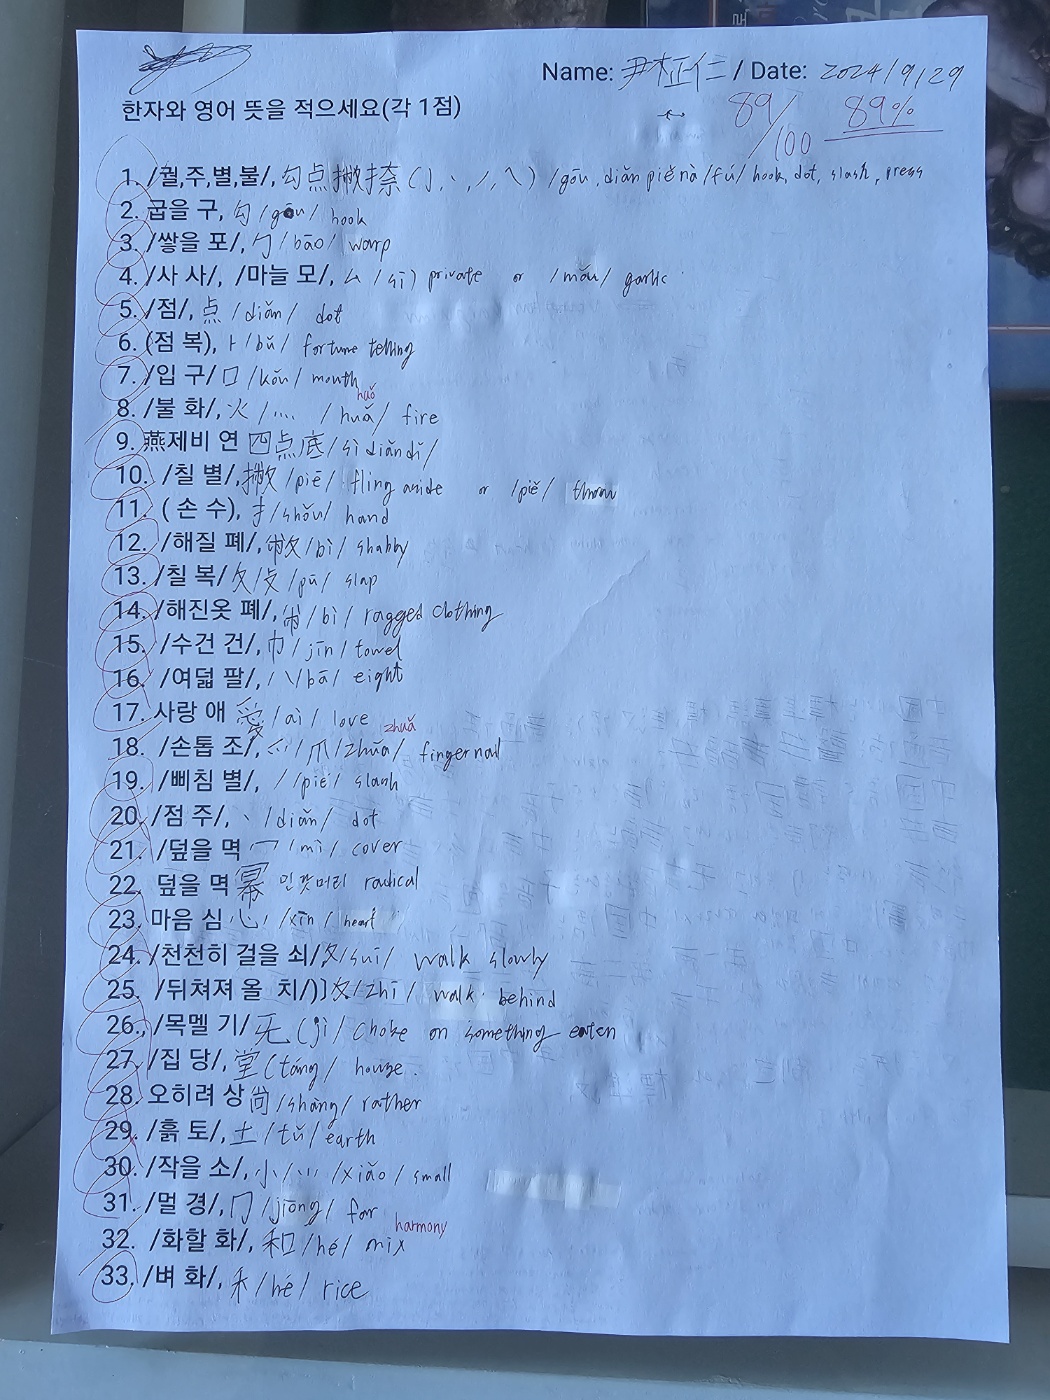 Name: 尹柾仁 / Date: 2024/9/29
한자와 영어 뜻을 적으세요(각 1점)
89/100 89%
1. /궐,주,별,불/, 勾点撇捺 (亅,丶,丿,乀) /gōu, diǎn piě nà /fú/ hook, dot, slash, press
2. 굽을 구, 勾 /gōu/ hook
3. /쌓을 포/, 勹 /bāo/ warp
4. /사 사/, /마늘 모/, 厶 /sī) private or /mǒu/ garlic
5. /점/, 点 /diǎn/ dot
6. (점 복), 卜 /bǔ/ fortune telling
7. /입 구/ 口 /kǒu/ mouth
huǒ
8. /불 화/, 火 /灬 /huǎ/ fire
9. 燕제비 연 四点底/sì diǎn dǐ/
10. /칠 별/, 撇 /piē/ fling aside or /piě/ throw
11. ( 손 수), 扌/shǒu/ hand
12. /해질 폐/, 敝/bì/ shabby
13. /칠 복/ 攵/攴 /pū/ slap
14. /해진옷 폐/, 㡀/bì/ ragged clothing
15. /수건 건/, 巾/jīn/ towel
16. /여덟 팔/, 八/bā/ eight
17. 사랑 애 愛/ài/ love
zhuǎ
18. /손톱 조/, 爫/爪/zhūa/ fingernail
19. /삐침 별/, 丿/piě/ slash
20. /점 주/, 丶 /diǎn/ dot
21. /덮을 멱 冖 /mì/ cover
22. 덮을 멱 冪 민갓머리 radical
23. 마음 심 心 /xīn/ heart
24. /천천히 걸을 쇠/夊/suī/ walk slowly
25. /뒤쳐져 올 치/)]夂/zhǐ/ walk behind
26., /목멜 기/ 旡 (jì/ choke on something eaten
27. /집 당/, 堂(táng/ house.
28. 오히려 상 尙 /shàng/ rather
29. /흙 토/, 土 /tǔ/ earth
30. /작을 소/, 小/⺌ /xiǎo/ small
31. /멀 경/, 冂 /jiōng/ far
harmony
32. /화할 화/, 和/hé/ mix
33. /벼 화/, 禾/hé/ rice